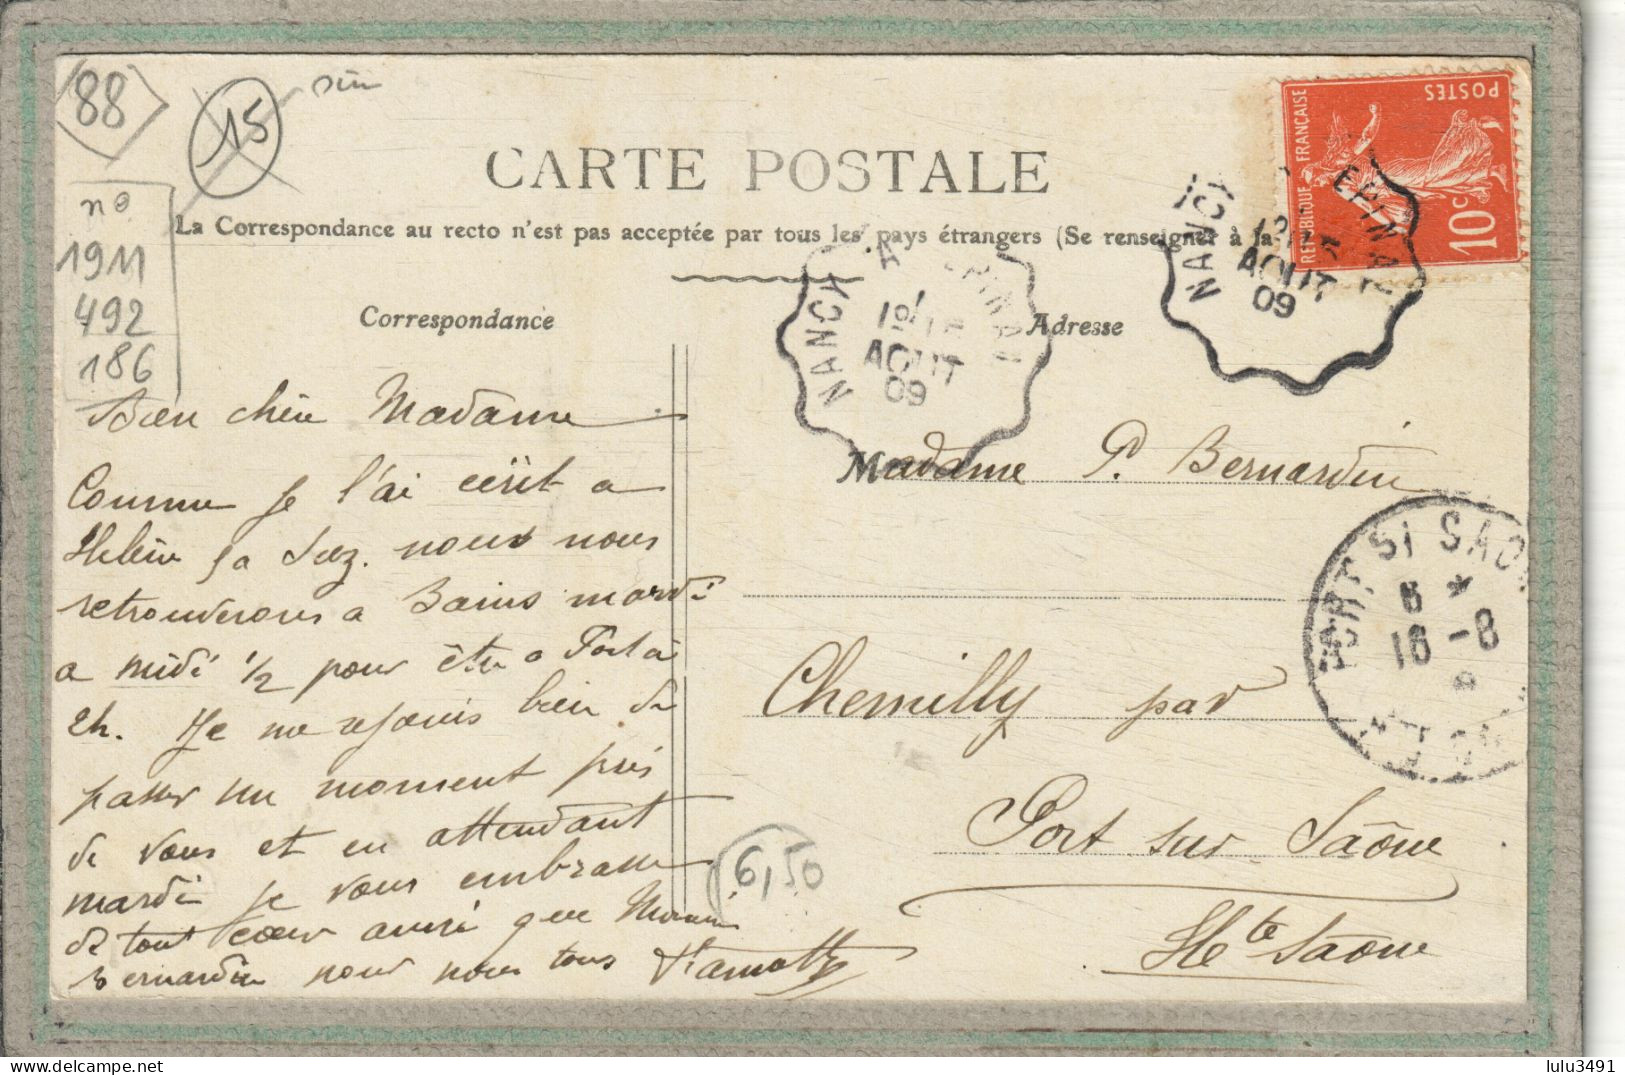 88
15
nº
1911
492
186
CARTE POSTALE
La Correspondance au recto n'est pas acceptée par tous les pays étrangers (Se renseigner à la
Correspondance
Adresse
POSTES
REPUBLIQUE FRANÇAISE
10c
NANCY
EPINAL
AOUT
09
NANCY
A
EPINAL
AOUT
09
Bien chère Madame
Comme je l'ai écrit a
nous nous
retrouverons a Bains mardi
a midi 1/2 pour être a Port à
2h. Je me rejouis bien de
passer un moment près
de vous et en attendant
mardi je vous embrasse
de tout cœur ainsi que
Bernardin pour nous tous
Madame P. Bernardin
Chemilly par
Port sur Saône
Hte Saône
PORT S/ SAONE
16 - 8
6,50
lulu3491